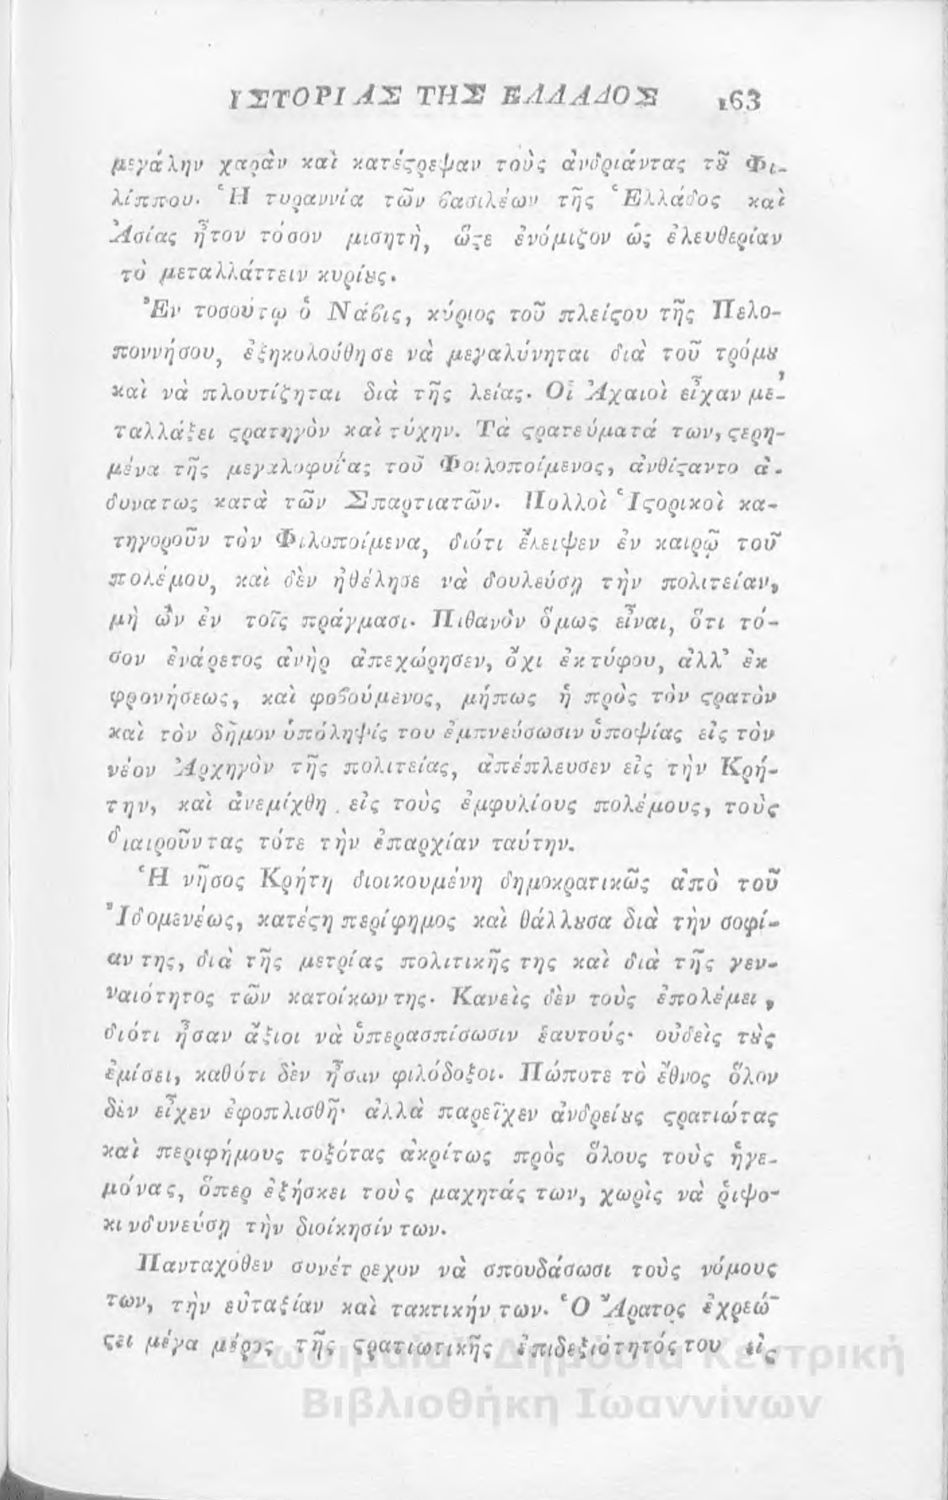 ΙΣΤΟΡΙΑΣ ΤΗΣ ΕΛΛΑΔΟΣ 163
μεγάλην χαρὰν καὶ κατέςρεψαν τοὺς ἀνδριάντας τȣ͂ Φι-
λίππου. Ἡ τυραννία τῶν βασιλέων τῆς Ἑλλάδος καὶ
Ἀσίας ἦτον τόσον μισητὴ, ὥςε ἐνόμιζον ὡς ἐλευθερίαν
τὸ μεταλλάττειν κυρίȣς.
Ἐν τοσούτῳ ὁ Νάβις, κύριος τοῦ πλείςου τῆς Πελο-
ποννήσου, ἐξηκολούθησε νὰ μεγαλύνηται διὰ τοῦ τρόμȣ
καὶ νὰ πλουτίζηται διὰ τῆς λείας. Οἱ Ἀχαιοὶ εἶχαν με-
ταλλάξει ςρατηγὸν καὶ τύχην. Τὰ ςρατεύματά των, ςερη-
μένα τῆς μεγαλοφυΐας τοῦ Φοιλοποίμενος, ἀνθίςαντο ἀ-
δυνατως κατὰ τῶν Σπαρτιατῶν. Πολλοὶ Ἱςορικοὶ κα-
τηγοροῦν τὸν Φιλοποίμενα, διότι ἔλειψεν ἐν καιρῷ τοῦ
πολέμου, καὶ δὲν ἠθέλησε νὰ δουλεύσῃ τὴν πολιτείαν,
μὴ ὢν ἐν τοῖς πράγμασι. Πιθανὸν ὅμως εἶναι, ὅτι τό-
σον ἐνάρετος ἀνὴρ ἀπεχώρησεν, ὄχι ἐκ τύφου, ἀλλ’ ἐκ
φρονήσεως, καὶ φοβούμενος, μήπως ἡ πρὸς τὸν ςρατὸν
καὶ τὸν δῆμον ὑπόληψίς του ἐμπνεύσωσιν ὑποψίας εἰς τὸν
νέον Ἀρχηγὸν τῆς πολιτείας, ἀπέπλευσεν εἰς τὴν Κρή-
την, καὶ ἀνεμίχθη εἰς τοὺς ἐμφυλίους πολέμους, τοὺς
διαιροῦντας τότε τὴν ἐπαρχίαν ταύτην.
Ἡ νῆσος Κρήτη διοικουμένη δημοκρατικῶς ἀπὸ τοῦ
Ἰδομενέως, κατέςη περίφημος καὶ θάλλȣσα διὰ τὴν σοφί-
αν της, διὰ τῆς μετρίας πολιτικῆς της καὶ διὰ τῆς γεν-
ναιότητος τῶν κατοίκων της. Κανεὶς δὲν τοὺς ἐπολέμει,
διότι ἦσαν ἄξιοι νὰ ὑπερασπίσωσιν ἑαυτούς· οὐδεὶς τȣ̀ς
ἐμίσει, καθότι δὲν ἦσαν φιλόδοξοι. Πώποτε τὸ ἔθνος ὅλον
δὲν εἶχεν ἐφοπλισθῆ· ἀλλὰ παρεῖχεν ἀνδρείȣς ςρατιώτας
καὶ περιφήμους τοξότας ἀκρίτως πρὸς ὅλους τοὺς ἡγε-
μόνας, ὅπερ ἐξήσκει τοὺς μαχητάς των, χωρὶς νὰ ῥιψο-
κινδυνεύσῃ τὴν διοίκησίν των.
Πανταχόθεν συνέτρεχον νὰ σπουδάσωσι τοὺς νόμους
των, τὴν εὐταξίαν καὶ τακτικήν των. Ὁ Ἄρατος ἐχρεώ-
ςει μέγα μέρος τῆς ςρατιωτικῆς ἐπιδεξιότητός του εἰς
Ζωσιμαία Δημόσια Κεντρική
Βιβλιοθήκη Ιωαννίνων